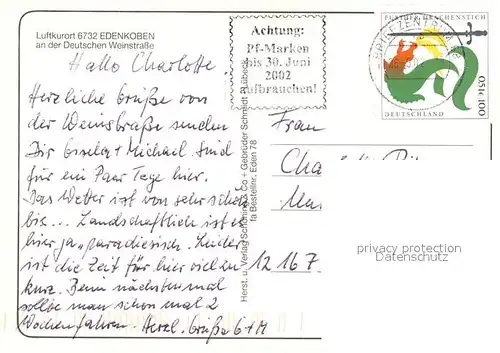 Luftkurort 6732 EDENKOBEN
an der Deutschen Weinstraße
Hallo Charlotte,
Herzliche Grüße von
der Weinstraße senden
Dir Gisela + Michael. Sind
für ein Paar Tage hier.
Das Wetter ist von sehr schön
bis ... Landschaftlich ist es
hier ja "paradiesisch. Leider
ist die Zeit für hier viel zu
kurz. Beim nächsten mal
sollte man schon mal 2
Wochen fahren. Herzl. Grüße G+M
Herst. u. Verlag Schöning & Co + Gebrüder Schmidt
Bestellnr. Eden 78
Achtung:
Pf-Marken
bis 30. Juni
2002
aufbrauchen!
BRIEFZENTRUM
FURTHER DRACHENSTICH
0,51€ 100
DEUTSCHLAND
Frau
Cha
12167
privacy protection
Datenschutz